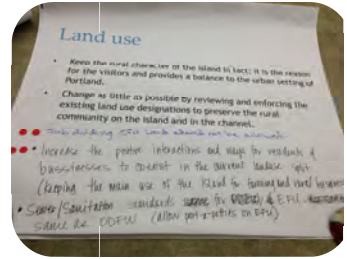 Land use
• Keep the rural character of the island in tact; it is the reason
for the visitors and provides a balance to the urban setting of
Portland.
• Change as little as possible by reviewing and enforcing the
existing land use designations to preserve the rural
community on the island and in the channel.
Subdividing EFU Land should not be allowed
• Increase the positive interactions and ways for residents &
businesses to coexist in the current landuse
(keeping the main use of the Island for farming and rural
• Sewer/Sanitation standards same for EFU
same as ODFW (allow port-a-potties on EFU)